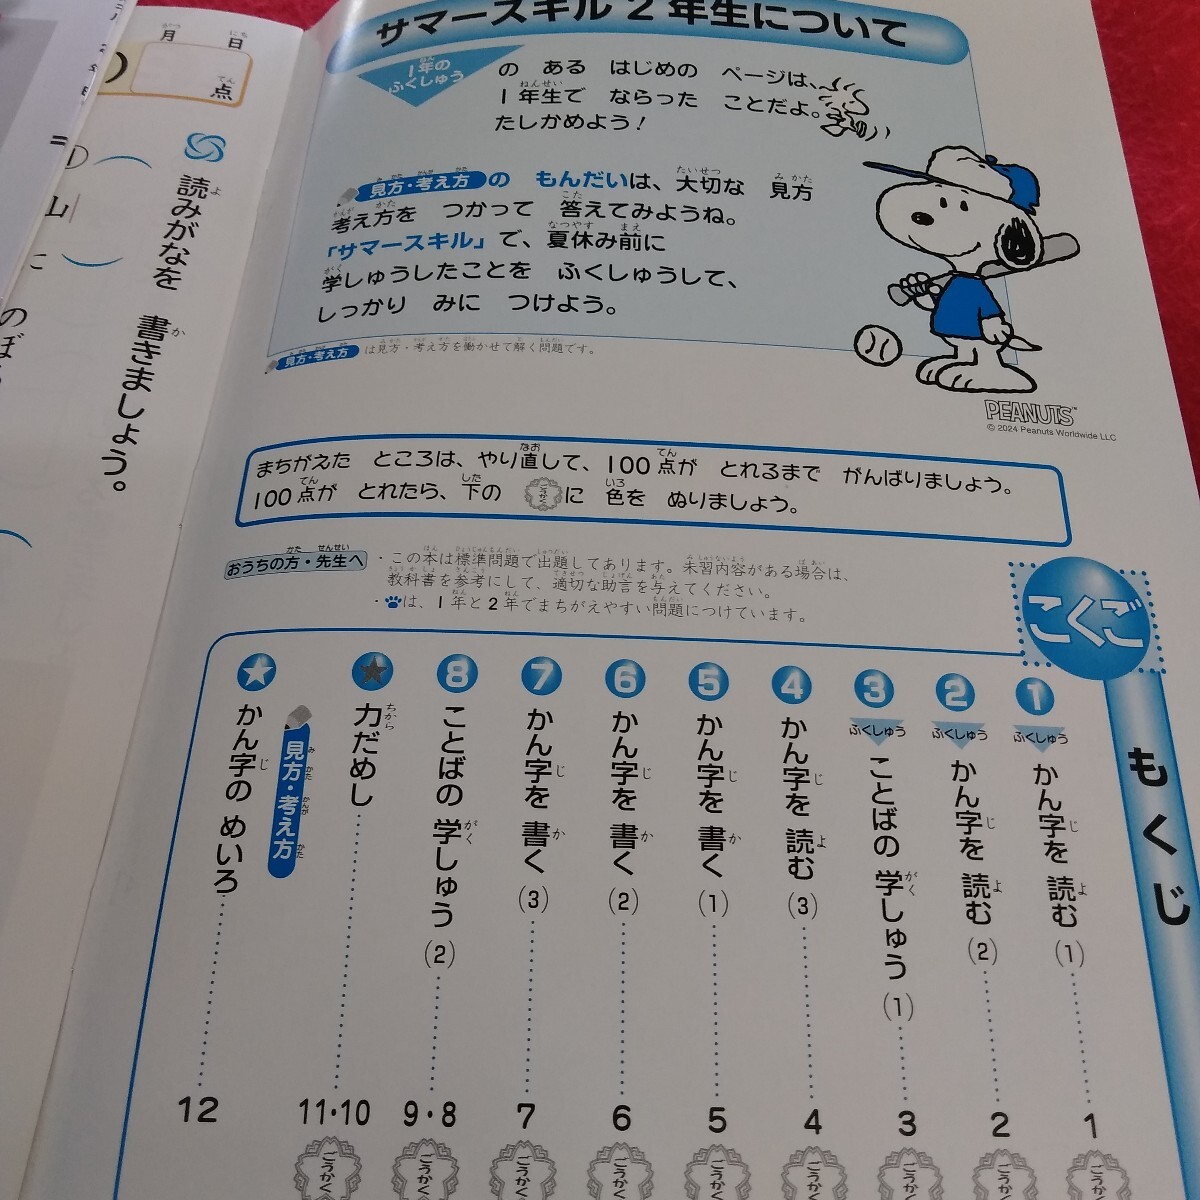 サマースキル2年生について
1年の
ふくしゅう
の ある はじめの ページは、
1年生で ならった ことだよ。
たしかめよう!
見方・考え方の もんだいは、大切な 見方
考え方を つかって 答えてみようね。
「サマースキル」で、夏休み前に
学しゅうしたことを ふくしゅうして、
しっかり みに つけよう。
見方・考え方 は見方・考え方を働かせて解く問題です。
PEANUTS
© 2024 Peanuts Worldwide LLC
まちがえた ところは、やり直して、100点が とれるまで がんばりましょう。
100点が とれたら、下の ごうかくに 色を ぬりましょう。
おうちの方・先生へ
・この本は標準問題で出題してあります。未習内容がある場合は、
教科書を参考にして、適切な助言を与えてください。
・は、1年と2年でまちがえやすい問題につけています。
こくご
もくじ
1 ふくしゅう かん字を 読む (1) 1
2 ふくしゅう かん字を 読む (2) 2
3 ふくしゅう ことばの 学しゅう (1) 3
4 かん字を 読む (3) 4
5 かん字を 書く (1) 5
6 かん字を 書く (2) 6
7 かん字を 書く (3) 7
8 ことばの 学しゅう (2) 9・8
★ 力だめし 11・10
見方・考え方
★ かん字の めいろ 12
ごうかく
ごうかく
ごうかく
ごうかく
ごうかく
ごうかく
ごうかく
ごうかく
ごうかく
月 日
点
読みがなを 書きましょう。
①
山
に
のぼ